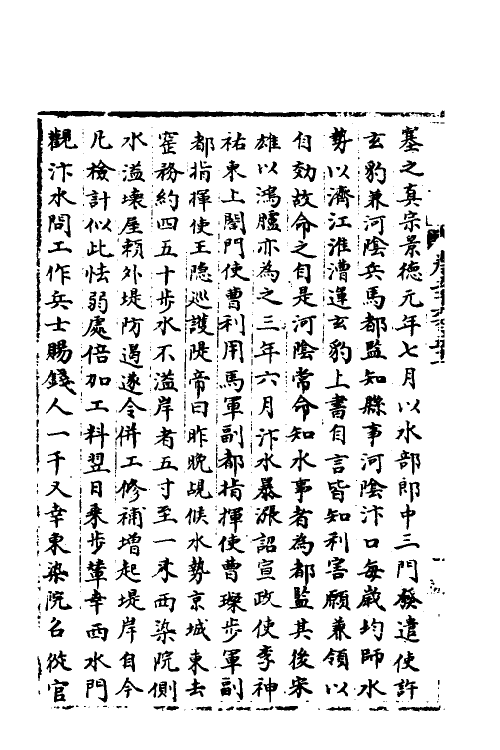 塞之真宗景德元年七月以水部郎中三門發遣使許
玄豹兼河陰兵馬都監知縣事河陰汴口每歲均師水
勢以濟江淮漕運玄豹上書自言皆知利害願兼領以
自効故命之自是河陰常命知水事者為都監其後宋
雄以鴻臚亦為之三年六月汴水暴漲詔宣政使李神
祐東上閤門使曹利用馬軍副都指揮使曹璨步軍副
都指揮使王隐巡護隄帝曰昨晚覘候水勢京城東去
窑務約四五十步水不溢岸者五寸至一米西染院側
水溢壊屋頼外堤防遏遂令併工修補增起堤岸自今
凡檢計似此怯弱處倍加工料翌日乗步輦幸西水門
觀汴水閱工作兵士賜錢人一千又幸東染院召從官